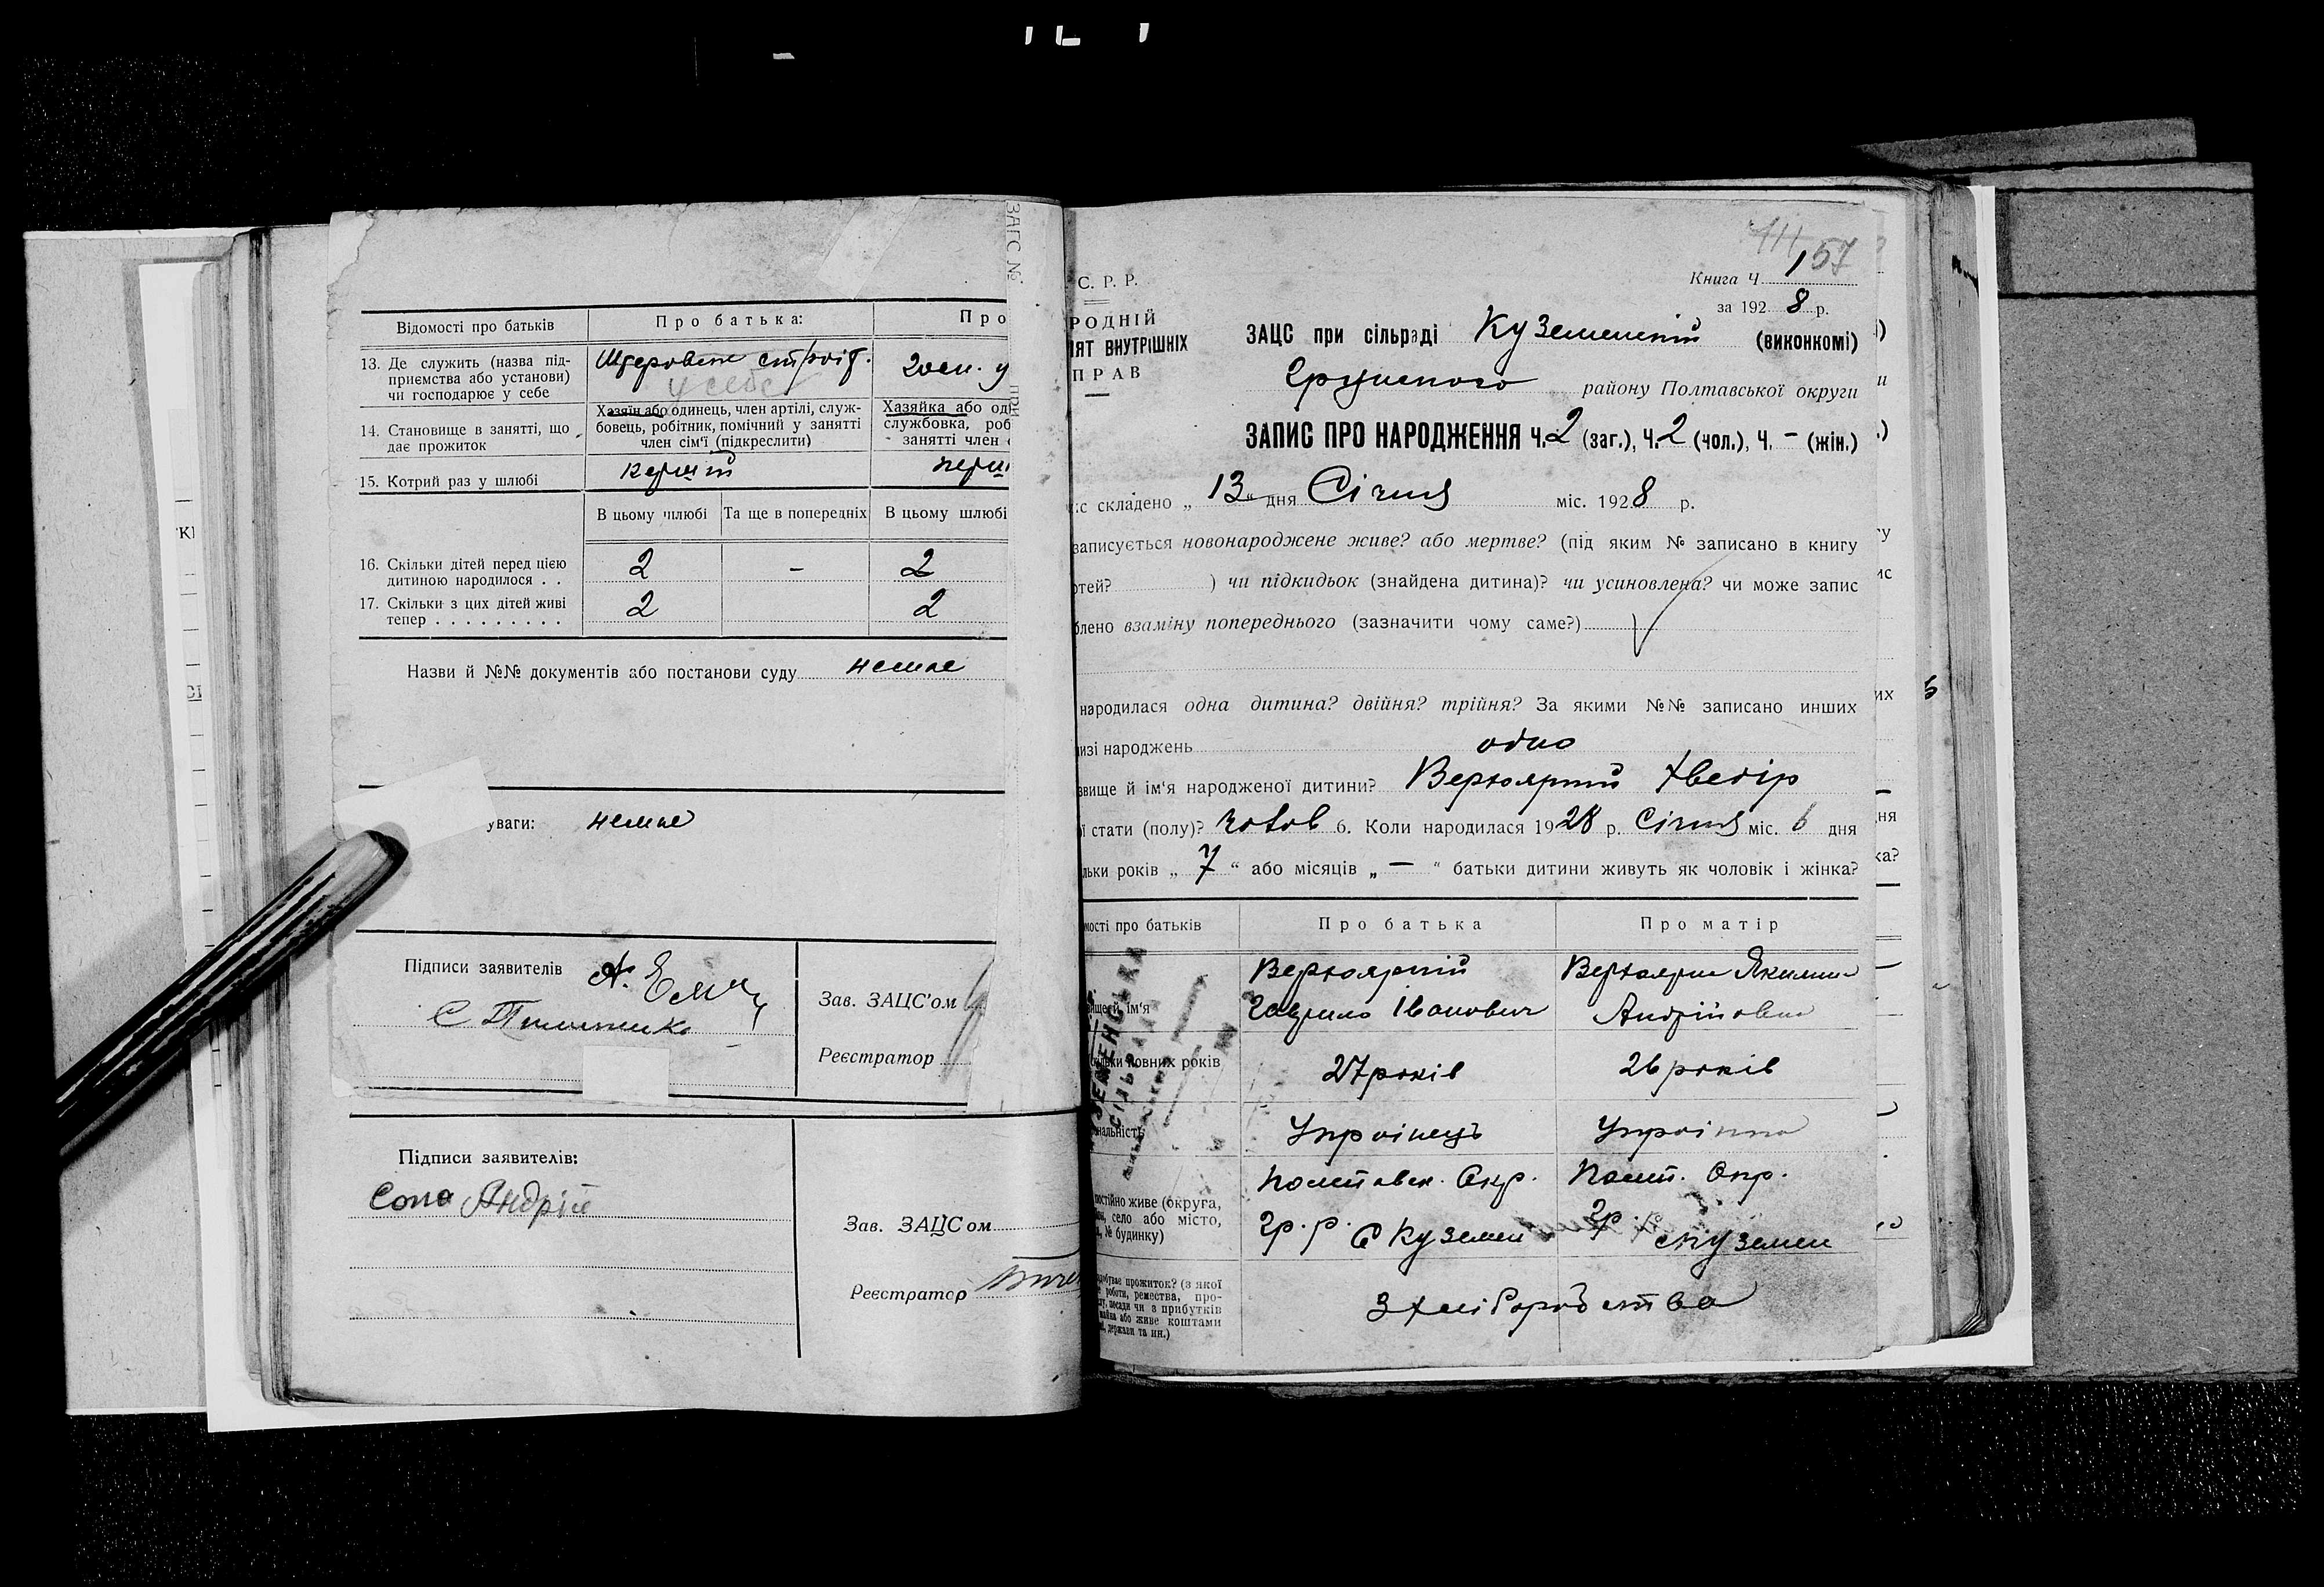 Відомості про батьків
Про батька:
Про
13. Де служить (назва під-
приємства або установи)
чи господарює у себе
у себе
14. Становище в занятті, що
дає прожиток
Хазяїн або одинець, член артілі, служ-
бовець, робітник, помічний у занятті
член сім'ї (підкреслити)
Хазяйка або од
службовка, роб
занятті член
15. Котрий раз у шлюбі
перший
перш
В цьому шлюбі
Та ще в попередніх
В цьому шлюбі
16. Скільки дітей перед цією
дитиною народилося . .
2
-
2
17. Скільки з цих дітей живі
тепер . . . . . . . . .
2
2
Назви й №№ документів або постанови суду немає
уваги: немає
Підписи заявителів
Зав. ЗАЦС'ом
Реєстратор
Підписи заявителів:
Сопа Андрій
Зав. ЗАЦСом
Реєстратор
ЗАГС №
С. Р. Р.
РОДНІЙ
ІЯТ ВНУТРІШНІХ
ПРАВ
157
Книга Ч
за 1928 р.
ЗАЦС при сільраді Куземенській (виконкомі)
Грунського району Полтавської округи
ЗАПИС ПРО НАРОДЖЕННЯ Ч. 2 (заг.), Ч. 2 (чол.), Ч. - (жін.)
с складено „13" дня Січня міс. 1928 р.
записується новонароджене живе? або мертве? (під яким № записано в книгу
ртей? ) чи підкидьок (знайдена дитина)? чи усиновлена? чи може запис
блено взаміну попереднього (зазначити чому саме?)
народилася одна дитина? двійня? трійня? За якими №№ записано инших
изі народжень одно
звище й ім'я народженої дитини? Верхоярпій Хведір
ї стати (полу)? чолов 6. Коли народилася 1928 р. Січня міс. 6 дня
льки років „7" або місяців „—" батьки дитини живуть як чоловік і жінка?
мості про батьків
Про батька
Про матір
вище й ім'я
Гаврило Іванович
Андріївна
повних років
27 років
26 років
нальність
Українець
Українка
постійно живе (округа,
село або місто,
№ будинку)
Полтавск. Окр.
Гр. р. с Куземен
Полт. Окр.
Гр. р. с Куземен
добуває прожиток? (з якої
роботи, ремества, про-
посади чи з прибутків
майна або живе коштами
держави та ин.)
З хліборобства